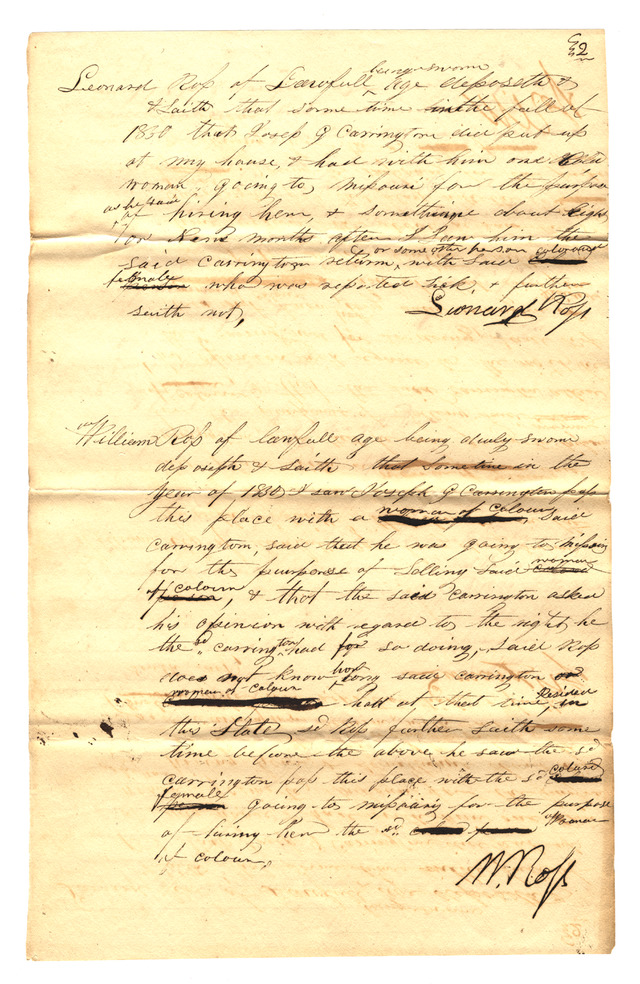 2
being sworn
Leonard Ross of Lawfull age deposeth &
& Saith that some time in the fall of
1830 that Josep G Carrington did put up
at my house, & had with him one
woman, going to, Missouri for the purpose
as he said
of hiring her, & something about Eight
or Nine months after I saw him the
or some other person
said Carrington return, with said coloured
female
person who was reported sick, & further
saith not,
Leonard Ross
William Ross of lawfull age being duly sworn
deposeth & Saith that sometime in the
year of 1830 I saw Joseph G Carrington pass
this place with a woman of Colour, said
Carrington, said that he was going to Missouri
for the purpose of selling said woman
of colour
person, & that the said Carrington asked
his opinion with regard to the right he
the sd Carrington had for so doing, said Ross
does not know how long said Carrington or
woman of colour
had at that time Resided in
this State sd Ross further saith some
time before the above he saw the sd
Carrington pass this place with the sd colured
female
person going to Missouri for the purpose
of hiring her the sd Woman
of colour,
W. Ross